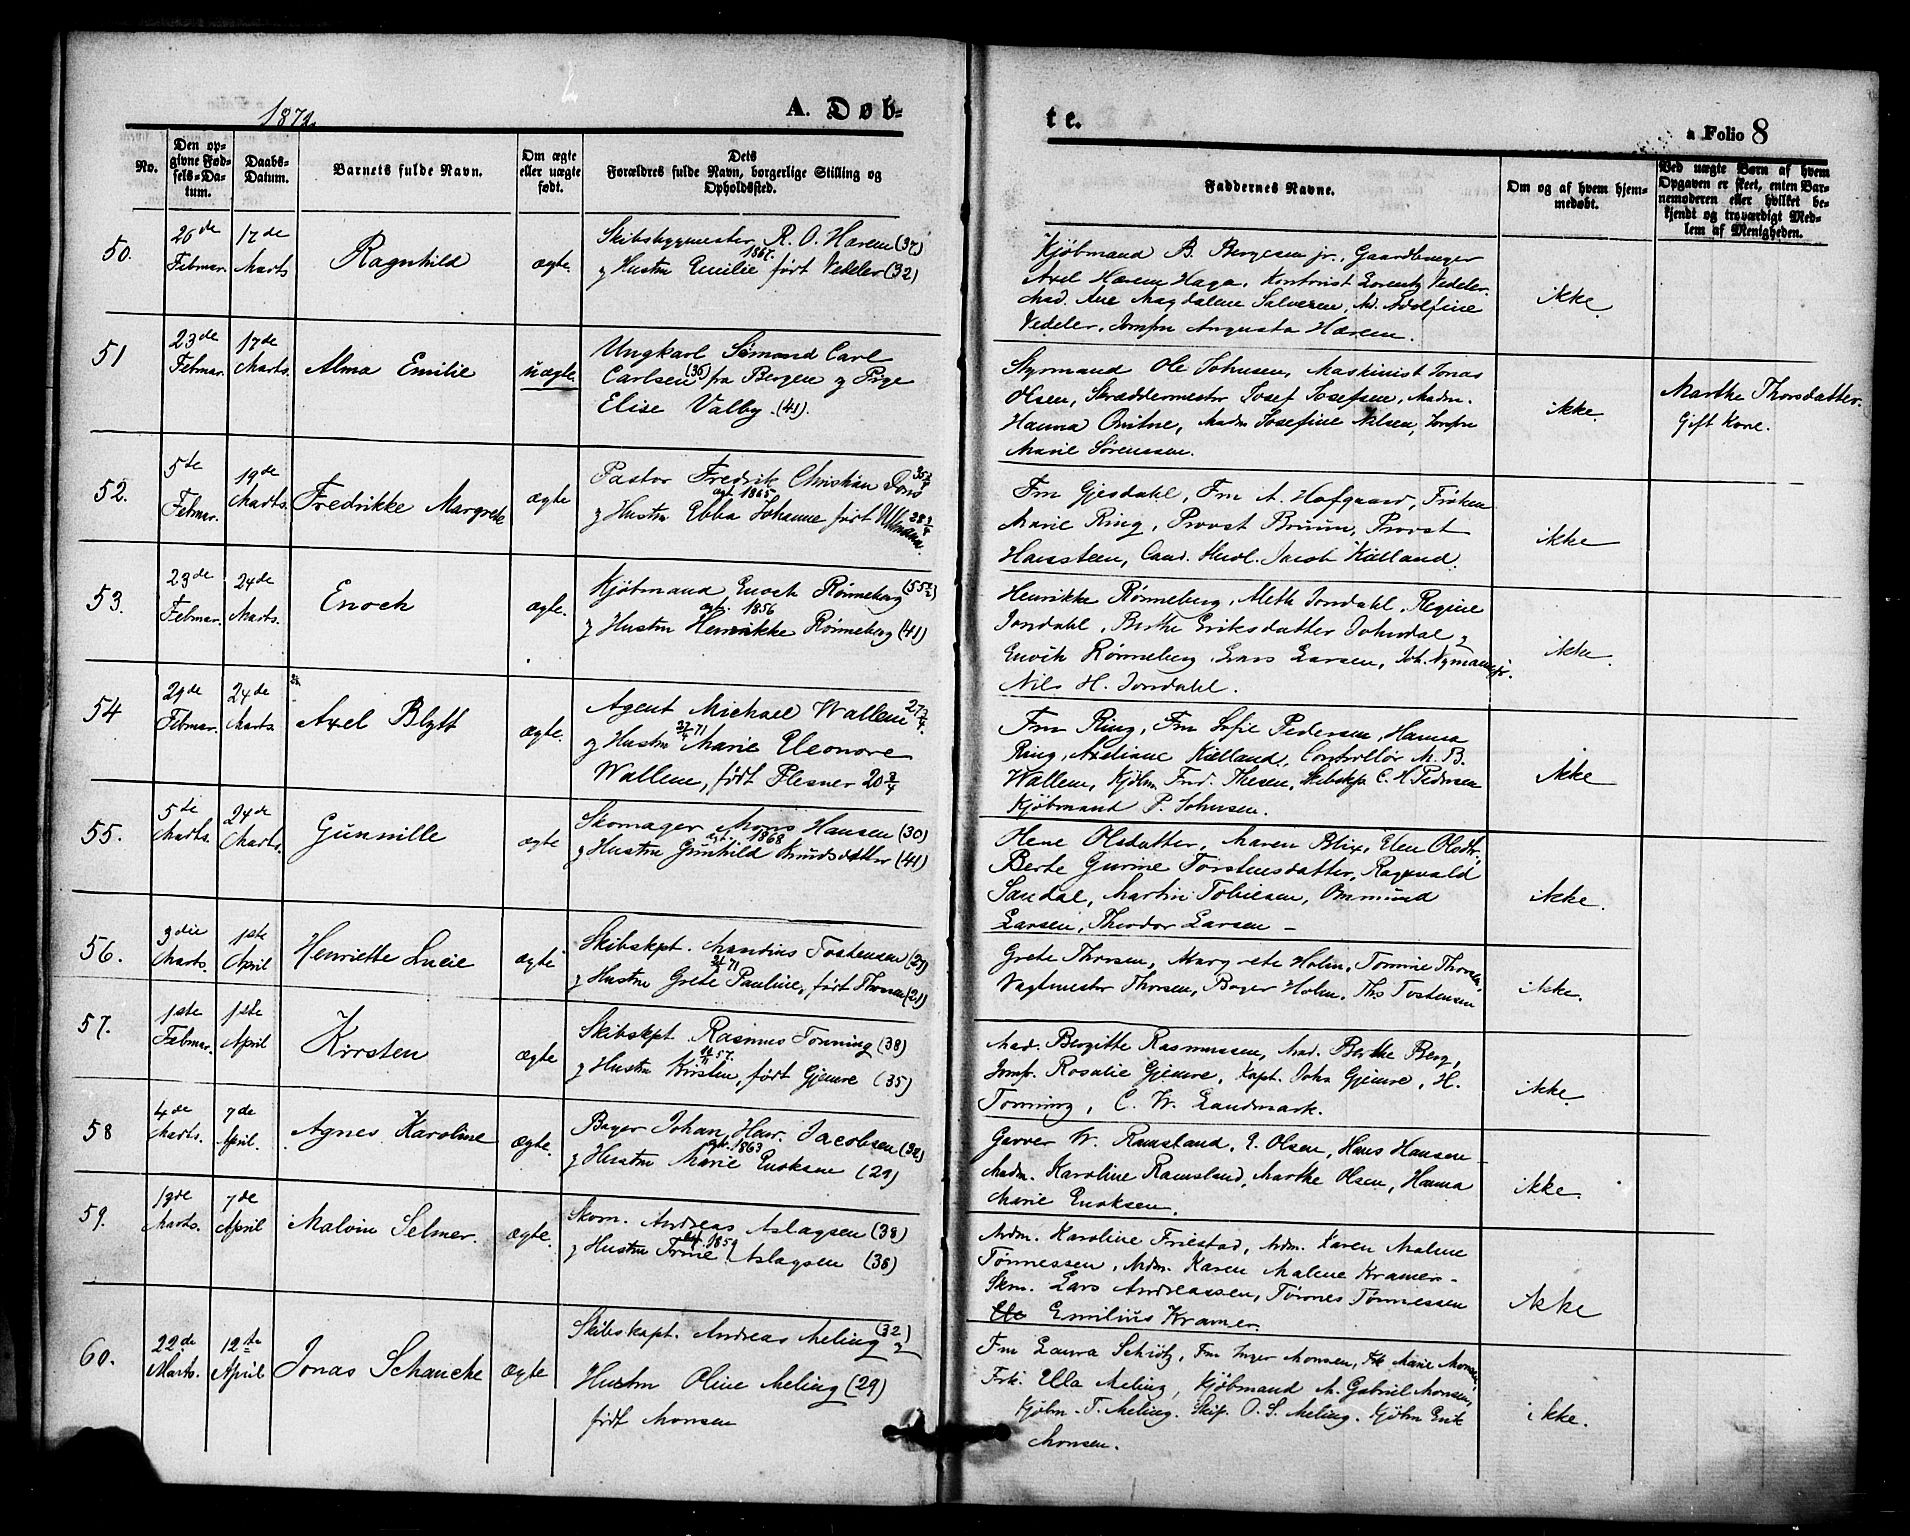 1872.
A. Døb-
te.
a Folio 8
No.
Den op-
givne Fød-
sels-Da-
tum.
Daabs-
Datum.
Barnets fulde Navn.
Om ægte
eller uægte
født.
Dets
Forældres fulde Navn, borgerlige Stilling og
Opholdssted.
Faddernes Navne.
Om og af hvem hjem-
medøbt.
Ved uægte Børn af hvem
Opgaven er skeet, enten Bar-
nemoderen eller hvilket be-
kjendt og troværdigt Med-
lem af Menigheden.
50.
26de
Februar.
17de
Marts
Ragnhild
ægte.
Skibsbygmester R. O. Hærem (37)
1867.
og Hustru Emilie født Vedeler (32)
Kjøbmand B. Bergesen jr., Gaardbruger
Axel Hærem Haga, Kontorist Lorentz Vedeler.
Mad. Ane Magdalene Salvesen, M. Adolfine
Vedeler, Jomfru Augusta Hærem.
ikke
51
23de
Februar.
17de
Marts.
Alma Emilie
uægte.
Ungkarl Simond Carl
Carlsen (36) fra Bergen og Pige
Elise Valby. (41).
Styrmand Ole Johnsen, Maskinist Jonas
Olsen, Skræddermester Josef Josefsen, Madm.
Hanna Qvitne, Madm Josefine Nilsen, Jomfru
Marie Sørenssen.
ikke.
Marthe Thorsdatter.
Gift Kone.
52.
5te
Februar.
19de
Marts.
Fredrikke Margrete
ægte
Pastor Fredrik Christian
gt. 1865
og Hustru Ebba Johanne født
Fru Gjesdahl, Fru A. Hofgaard, Frøken
Marie Ring, Provst Bruun, Provst
Hansteen, Cand. theol. Jacob Kielland.
ikke
53.
23de
Februar.
24de
Marts.
Enoch
ægte.
Kjøbmand Enoch Rønneberg (55½)
gt. 1856
og Hustru Henrikke Rønneberg (41)
Henrikke Rønneberg, Aleth Jondahl, Regine
Jondahl, Berthe Eriksdatter Johndal og
Enoch Rønneberg, Lars Larsen, Joh. Nymann jr.
Nils H. Jondahl.
ikke.
54
29de
Februar.
24de
Marts.
Axel Blytt
ægte.
Agent Michael Wallem 27¾
og Hustru Marie Eleonore
Wallem, født Flesner 20¾
Fru Ring, Fru Sofie Pedersen, Hanna
Ring, Axeliane Kielland, Controllør M. B.
Wallem, Kjøbm Fred. Thesen, Skibskp. C. H. Pedersen
Kjøbmand P. Johnsen.
ikke
55.
5te
Marts.
24de
Marts.
Gunnille
ægte
Skomager Mons Hansen (30)
gt. 1868
og Hustru Gunhild Knudsdatter (41)
Olene Olsdatter, Maren Blix, Elen Olsdtr.
Berte Gurine Torstensdatter, Ragnvald
Sandal, Martin Tobiesen, Ommund
Larsen, Theodor Larsen –
ikke.
56.
3die
Marts.
1ste
April
Henriette Lucie
ægte
Skibskpt. Mandius Tostensen (27)
71
og Hustru Grete Pauline, født Thorsen (21)
Grete Thorsen, Margrete Holm, Tomine Thorsen,
Vagtmester Thorsen, Bager Holm, Ths Tostensen
ikke.
57.
1ste
Februar.
1ste
April
Kirsten
ægte
Skibskpt. Rasmus Tonning (38)
57.
og Hustru Kirsten, født Gjemre (35)
Mad. Bergitte Rasmussen, Mad. Berthe Berg,
Jomfr. Rosalie Gjemre, Kapt. John Gjemre, H.
Tonning, C. W. Landmark.
ikke.
58
4de
Marts.
7de
April.
Agnes Karoline
ægte.
Bager Johan Henr. Jacobsen (32)
gt. 1863
og Hustru Marie Enoksen (29)
Garver W. Ramsland, E. Olsen, Hans Hansen
Madm. Karoline Ramsland, Marthe Olsen, Hanna
Marie Enoksen.
ikke.
59.
13de
Marts.
7de
April
Malvin Selmer.
ægte.
Skom. Andreas Aslagsen (38)
1859
og Hustru Trine Aslagsen (36)
Mdm. Karoline Friestad, Mdm. Karen Malene
Tønnessen, Mdm. Karen Malene Kramer –
Skm. Lars Andreassen, Tønnes Tønnessen
Emilius Kramer.
ikke
60.
22de
Marts.
12te
April
Jonas Schancke
ægte
Skibskapt. Andreas Meling (32) og
Hustru Oline Meling (29)
født Monsen
Fru Laura Schiøtz, Fru Inger Monsen, Frk Marie Monsen,
Frk: Ella Meling, Kjøbmand M. Gabriel Monsen,
Kjøbm. T. Meling. Skip. O. S. Meling. Kjøbm Erik
Monsen.
ikke.